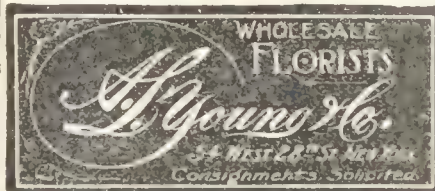 WHOLESALE
FLORISTS
A.L. Young & Co.
54 WEST 28TH ST. NEW YORK
Consignments Solicited